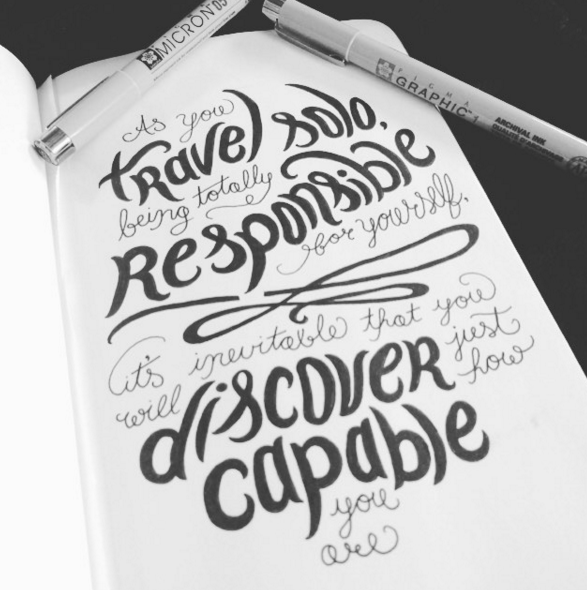 MICRON 05
PIGMA
GRAPHIC 1
ARCHIVAL INK
As you
travel solo,
being totally
Responsible
for yourself,
it's inevitable that you
will discover just
how
capable
you
are